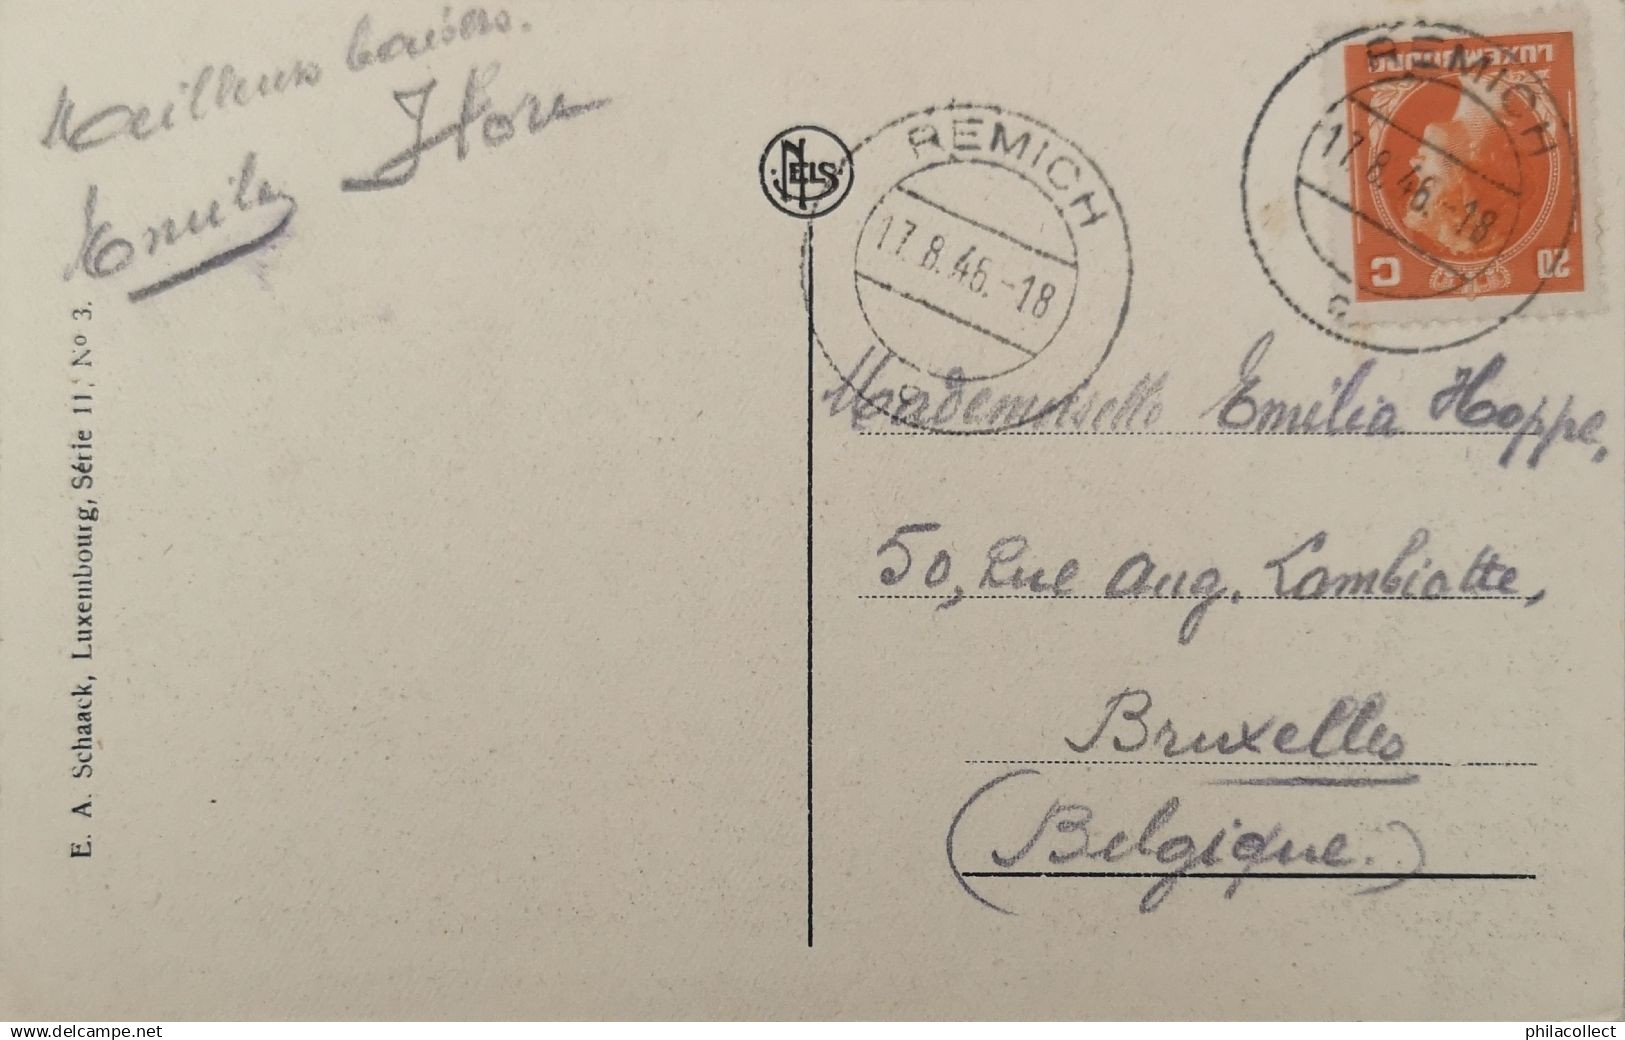 Meilleurs baisers.
Emile
NELS
REMICH
17.8.46.-18
REMICH
17.8.46.-18
LUXEMBOURG
20 C
Mademoiselle Emilia Hoppe,
50, Rue Aug. Lambiotte,
Bruxelles
(Belgique.)
E. A. Schaack, Luxembourg, Série 11, No 3.
philacollect